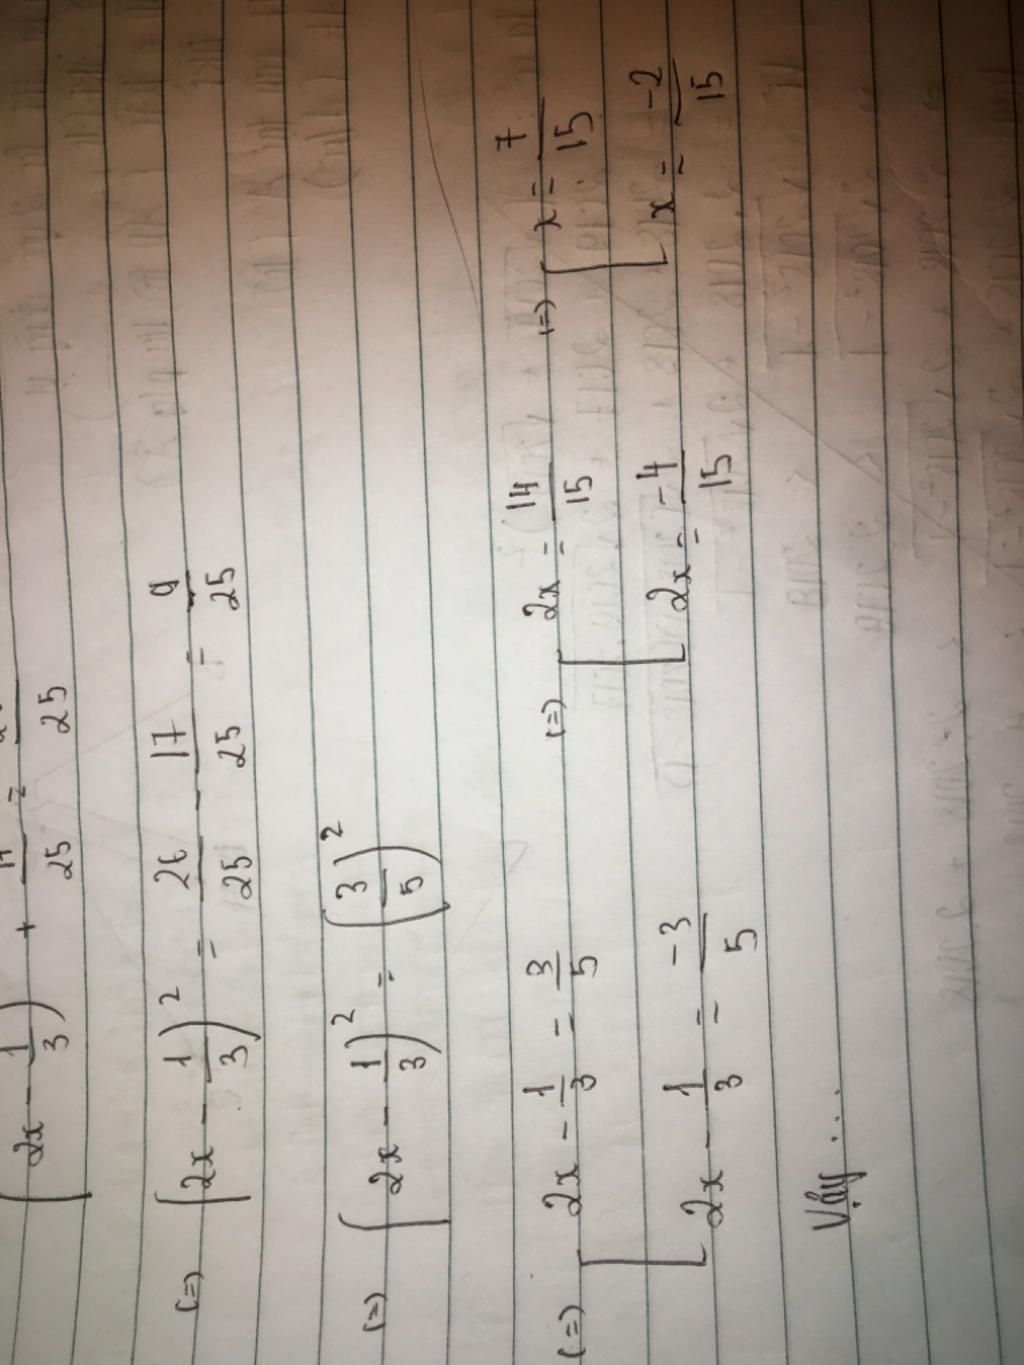 (2x - 1/3) + 17/25 = /25
(=) (2x - 1/3)² = 26/25 - 17/25 = 9/25
(=) (2x - 1/3)² = (3/5)²
(=) [ 2x - 1/3 = 3/5 (=) [ 2x = 14/15 (=) [ x = 7/15
2x - 1/3 = -3/5 2x = -4/15 x = -2/15
Vậy ...